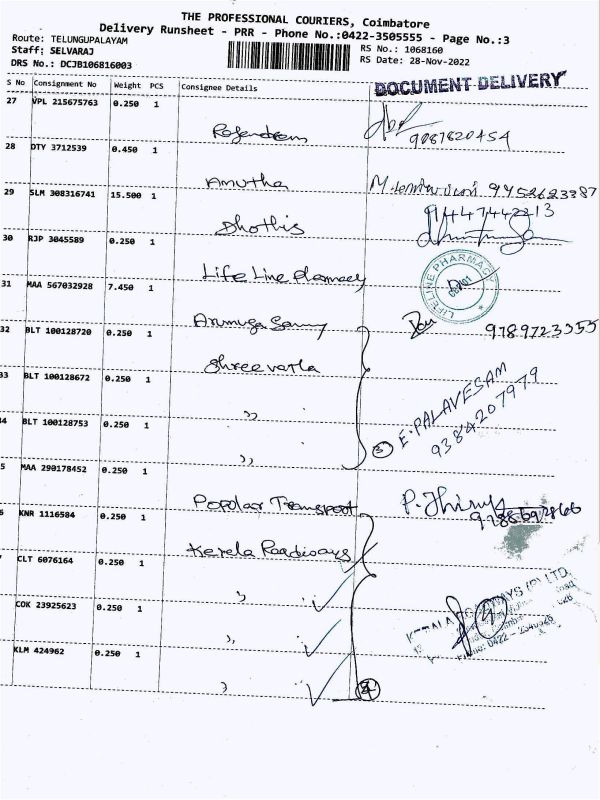 THE PROFESSIONAL COURIERS, Coimbatore
Delivery Runsheet - PRR - Phone No.:0422-3505555 - Page No.:3
Route: TELUNGUPALAYAM
Staff: SELVARAJ
RS No.: 1068160
DRS No.: DCJB106816003
RS Date: 28-Nov-2022
S No Consignment No Weight PCS Consignee Details
DOCUMENT DELIVERY
27 VPL 215675763 0.250 1
Rajendran 9087820454
28 DTY 3712539 0.450 1
Amutha M. 9458623387
29 SLM 308316741 15.500 1
Dhothis 9447442213
30 RJP 3045589 0.250 1
Life Line Pharmacy LIFELINE PHARMACY
31 MAA 567032928 7.450 1
Arumuga Samy 9789723355
32 BLT 100128720 0.250 1
Shree vatla
33 BLT 100128672 0.250 1
,,
E. PALAVESAM
9384207979
34 BLT 100128753 0.250 1
,, 3
5 MAA 290178452 0.250 1
Popolar Transport
6 KNR 1116584 0.250 1
Kerela Roadways
7 CLT 6076164 0.250 1
,,
COK 23925623 0.250 1
,,
KLM 424962 0.250 1
,, 4